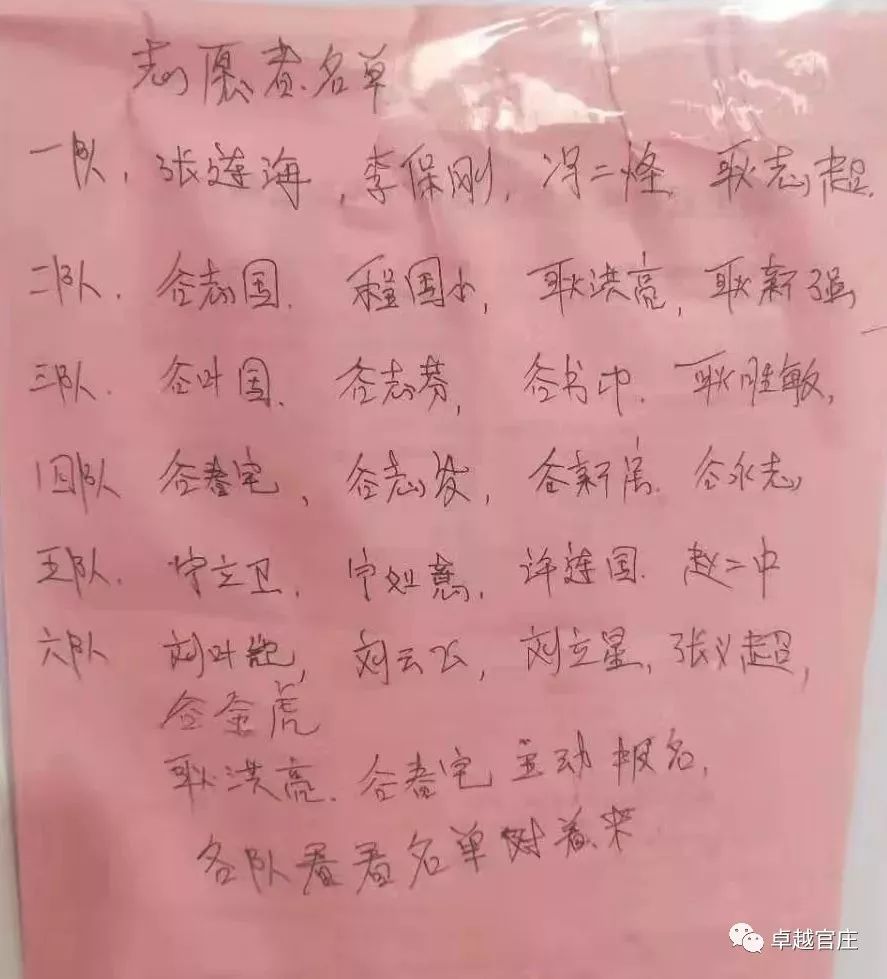 志愿者名单
一队，张莲海，李保刚，冯二烽，耿志超，
二队．谷志国．程国小，耿洪亮，耿新强
三队．谷叶国．谷志芬，谷书中．耿胜敏，
四队 谷春宅，谷志发，谷新房．谷永志
五队．宁立卫．宁如意．许莲国．赵二中
六队 刘叶，刘云飞，刘立星，张义超，
谷金虎
耿洪亮．谷春宅 主动报名，
各队看看名单对着来
卓越官庄